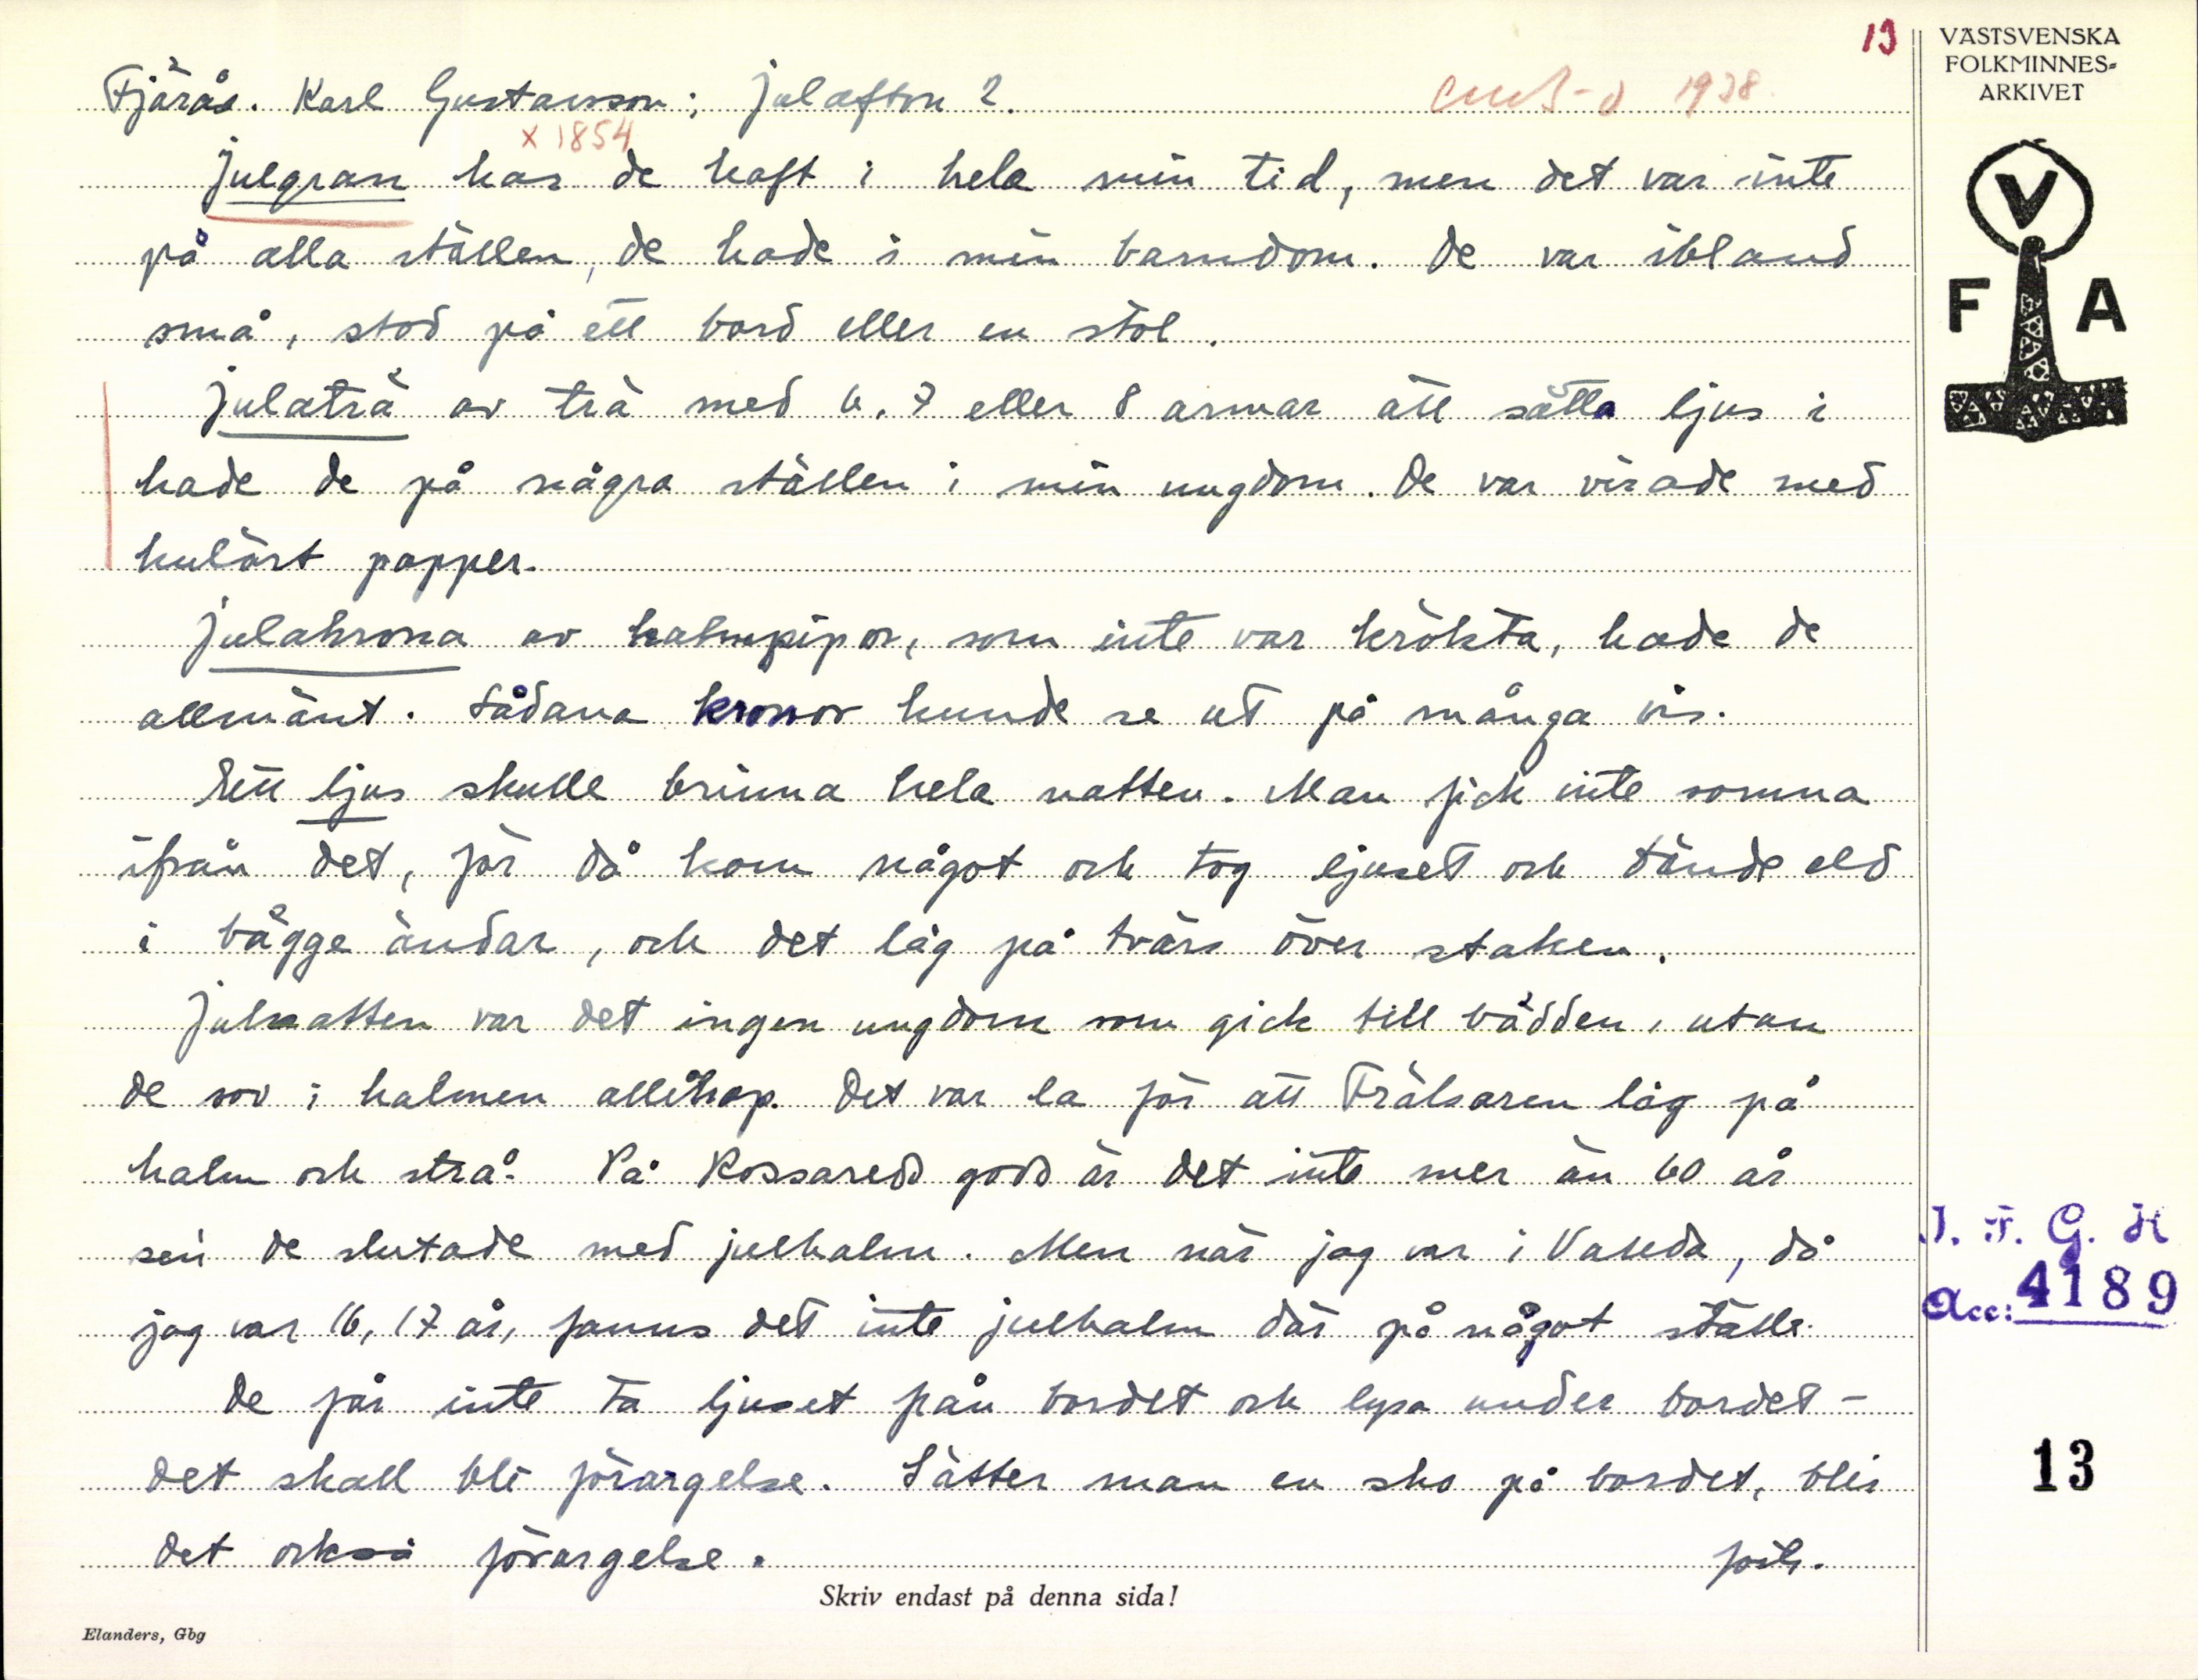 13
VÄSTSVENSKA
FOLKMINNES-
ARKIVET
Fjärås. Karl Gustavsson; Julafton 2.
1938.
x 1854
Julgran har de haft i hela min tid, men det var inte
på alla ställen, de hade i min barndom. De var ibland
små, stod på ett bord eller en stol.
Julaträ av trä med 6, 7 eller 8 armar att sätta ljus i
hade de på några ställen i min ungdom. De var virade med
kulört papper.
Julakrona av halmpipor, som inte var krökta, hade de
allmänt. Sådana kronor kunde se ut på många vis.
Ett ljus skulle brinna hela natten. Man fick inte somna
ifrån det, för då kom något och tog ljuset och tände eld
i bägge ändar, och det låg på tvärs över staken.
Julnatten var det ingen ungdom som gick till bädden, utan
de sov i halmen allihop. Det var la för att Frälsaren låg på
halm och strå. På Rossared god är det inte mer än 60 år
sen de slutade med julhalm. Men när jag var i Vallda, då
jag var 16, 17 år, fanns det inte julhalm där på något ställe.
De får inte ta ljuset från bordet och lysa under bordet -
det skall bli förargelse. Sätter man en sko på bordet, blir
det också förargelse.
forts.
V
F A
I. F. G. H
Acc: 4189
13
Skriv endast på denna sida!
Elanders, Gbg